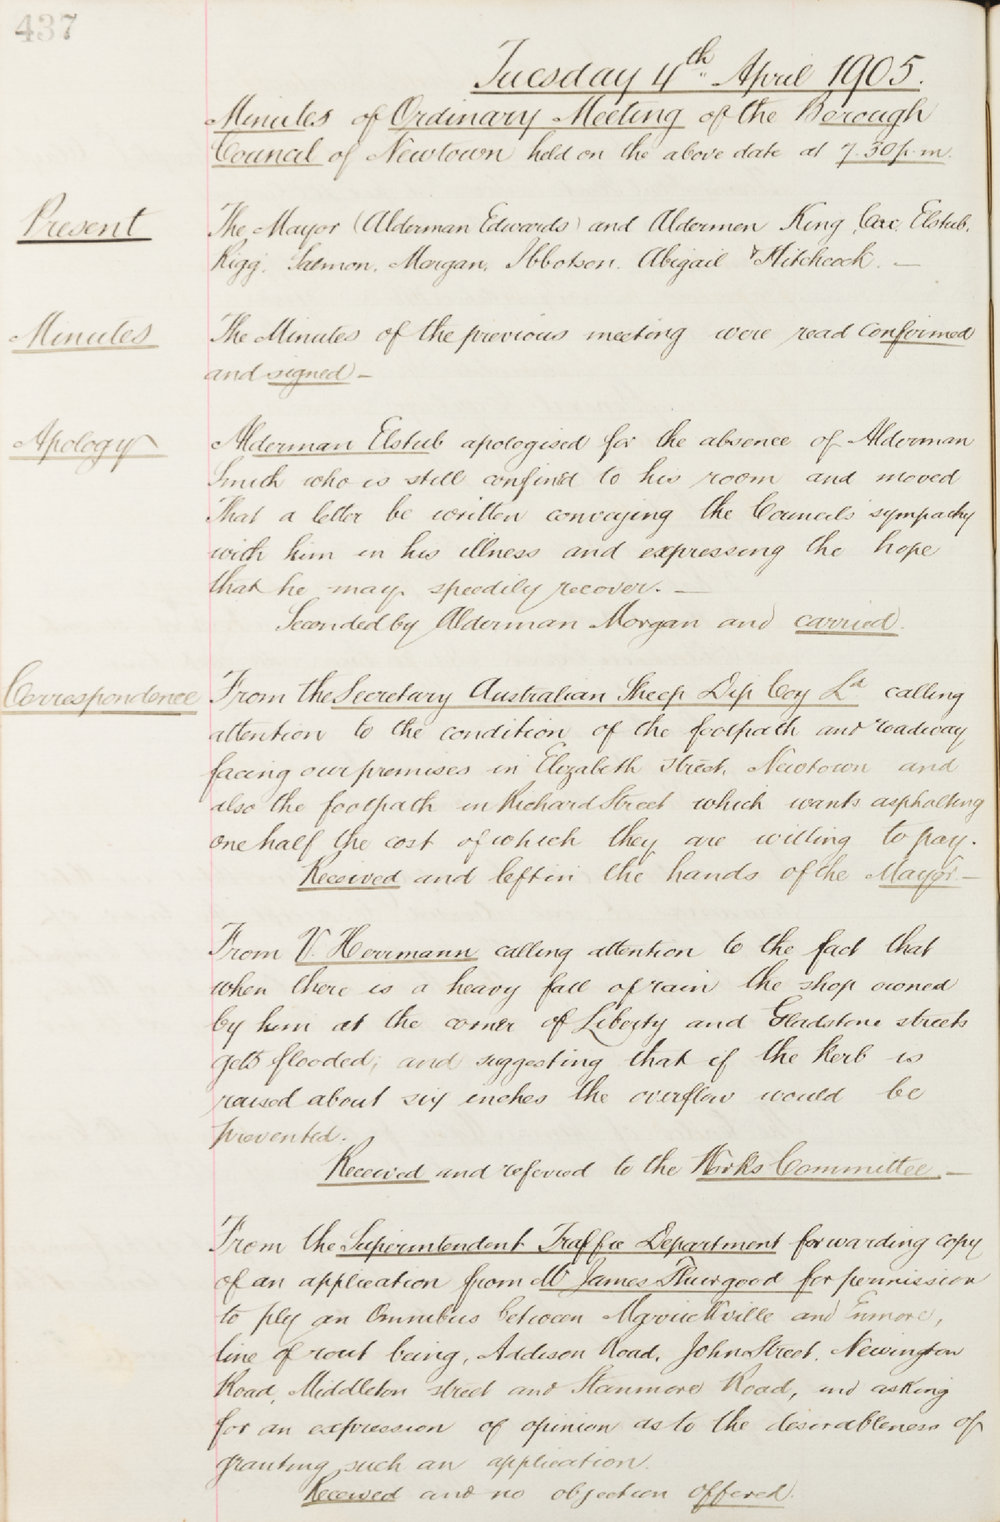 437
Tuesday 4th April 1905.
Minutes of Ordinary Meeting of the Borough
Council of Newtown held on the above date at 7.30 p.m.
Present
The Mayor (Alderman Edwards) and Aldermen King, Cox, Elstub,
Rigg, Salmon, Morgan, Ibbotson, Abigail & Hitchcock. —
Minutes
The Minutes of the previous meeting were read confirmed
and signed —
Apology
Alderman Elstub apologised for the absence of Alderman
Smith who is still confined to his room and moved
That a letter be written conveying the Council's sympathy
with him in his illness and expressing the hope
that he may speedily recover. —
Seconded by Alderman Morgan and carried.
Correspondence
From the Secretary Australian Sheep Dip Coy Ld calling
attention to the condition of the footpath and roadway
facing our premises in Elizabeth Street, Newtown and
also the footpath in Richard Street which wants asphalting
one half the cost of which they are willing to pay.
Received and left in the hands of the Mayor —
From V. Herrmann calling attention to the fact that
when there is a heavy fall of rain the shop owned
by him at the corner of Liberty and Gladstone streets
gets flooded; and suggesting that if the kerb is
raised about six inches the overflow would be
prevented.
Received and referred to the Works Committee —
From the Superintendent Traffic Department forwarding copy
of an application from Mr James Thurgood for permission
to ply an Omnibus between Marrickville and Enmore,
line of rout being, Addison Road, John Street, Newington
Road, Middleton street and Stanmore Road, and asking
for an expression of opinion as to the desirableness of
granting such an application.
Received and no objection offered.